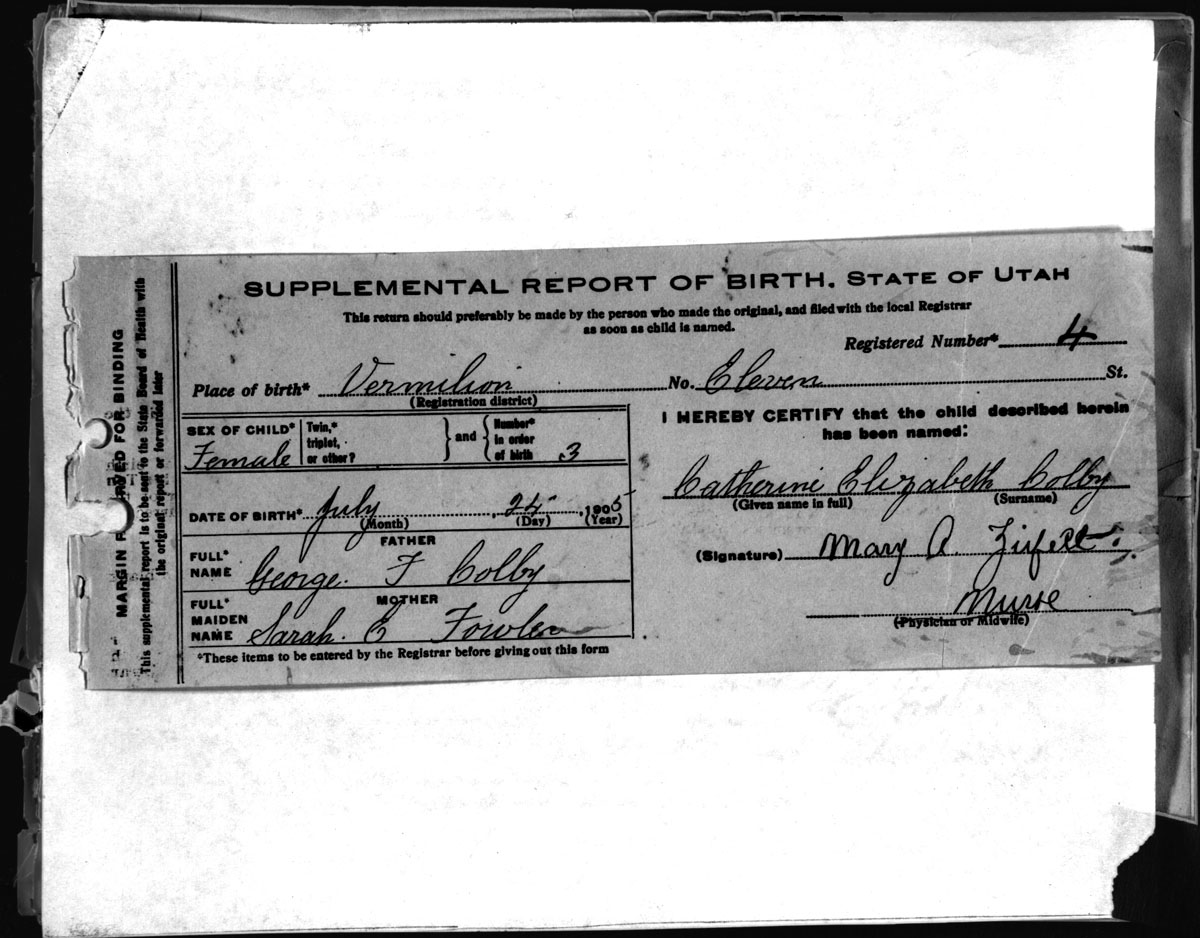 SUPPLEMENTAL REPORT OF BIRTH. STATE OF UTAH
This return should preferably be made by the person who made the original, and filed with the local Registrar
as soon as child is named.
Registered Number* 4
Place of birth* Vermilion No. Eleven St.
(Registration district)
SEX OF CHILD* Female
Twin,*
triplet,
or other?
and
Number*
in order
of birth 3
DATE OF BIRTH* July 25, 1905
(Month) (Day) (Year)
FATHER
FULL*
NAME George. F Colby
MOTHER
FULL*
MAIDEN
NAME Sarah. E Fowler
*These items to be entered by the Registrar before giving out this form
I HEREBY CERTIFY that the child described herein
has been named:
Catherine Elizabeth Colby
(Given name in full) (Surname)
(Signature) Mary A.
Nurse
(Physician or Midwife)
MARGIN RESERVED FOR BINDING
This supplemental report is to be sent to the State Board of Health with
the original report or forwarded later